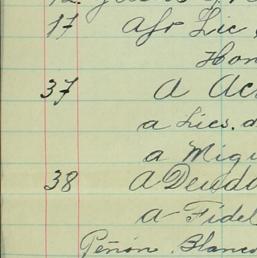 17 afr Lic
Hon
37 a Ac
a Lics. d
a Migu
38 a Deudo
a Fidel
Peñon Blanco